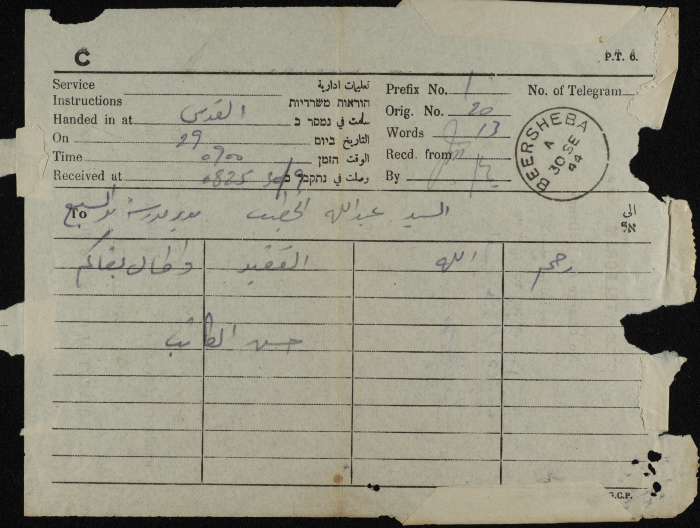 C
P.T. 6.
Service Instructions
تعليمات ادارية
הוראות משרדיות
Prefix No. 1
No. of Telegram
Handed in at القدس سلمت في נמסר ב
Orig. No. 20
On 29 التاريخ ביום
Words 13
Time 0700 الوقت הזמן
Recd. from
Received at 0825 30/9 وصلت في נתקבל ב
By
BEERSHEBA
A
30 SE
44
To السيد عبدالله الخطيب مدير مدرسة بئر السبع الى אל
رحم الله الفقيد واطال بقاكم
حسن الكاتب
G.C.P.